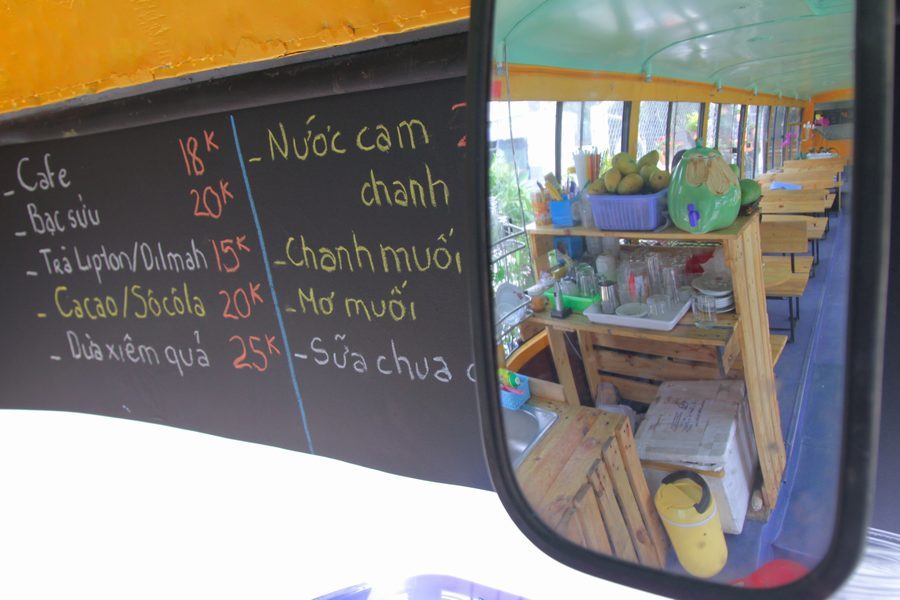 - Cafe 18K
- Bạc sửu 20K
- Trà Lipton/Dilmah 15K
- Cacao/Sôcôla 20K
- Dừa xiêm quả 25K
- Nước cam
chanh
- Chanh muối
- Mơ muối
- Sữa chua